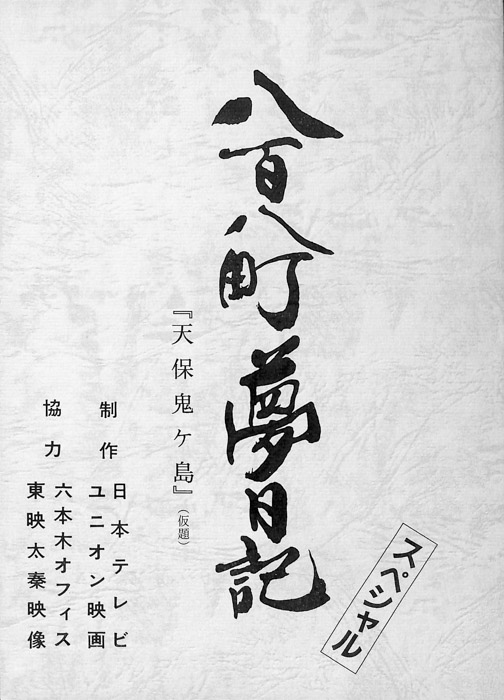 八百八町夢日記
スペシャル
『天保鬼ヶ島』（仮題）
制作 日本テレビ
ユニオン映画
協力 六本木オフィス
東映太秦映像